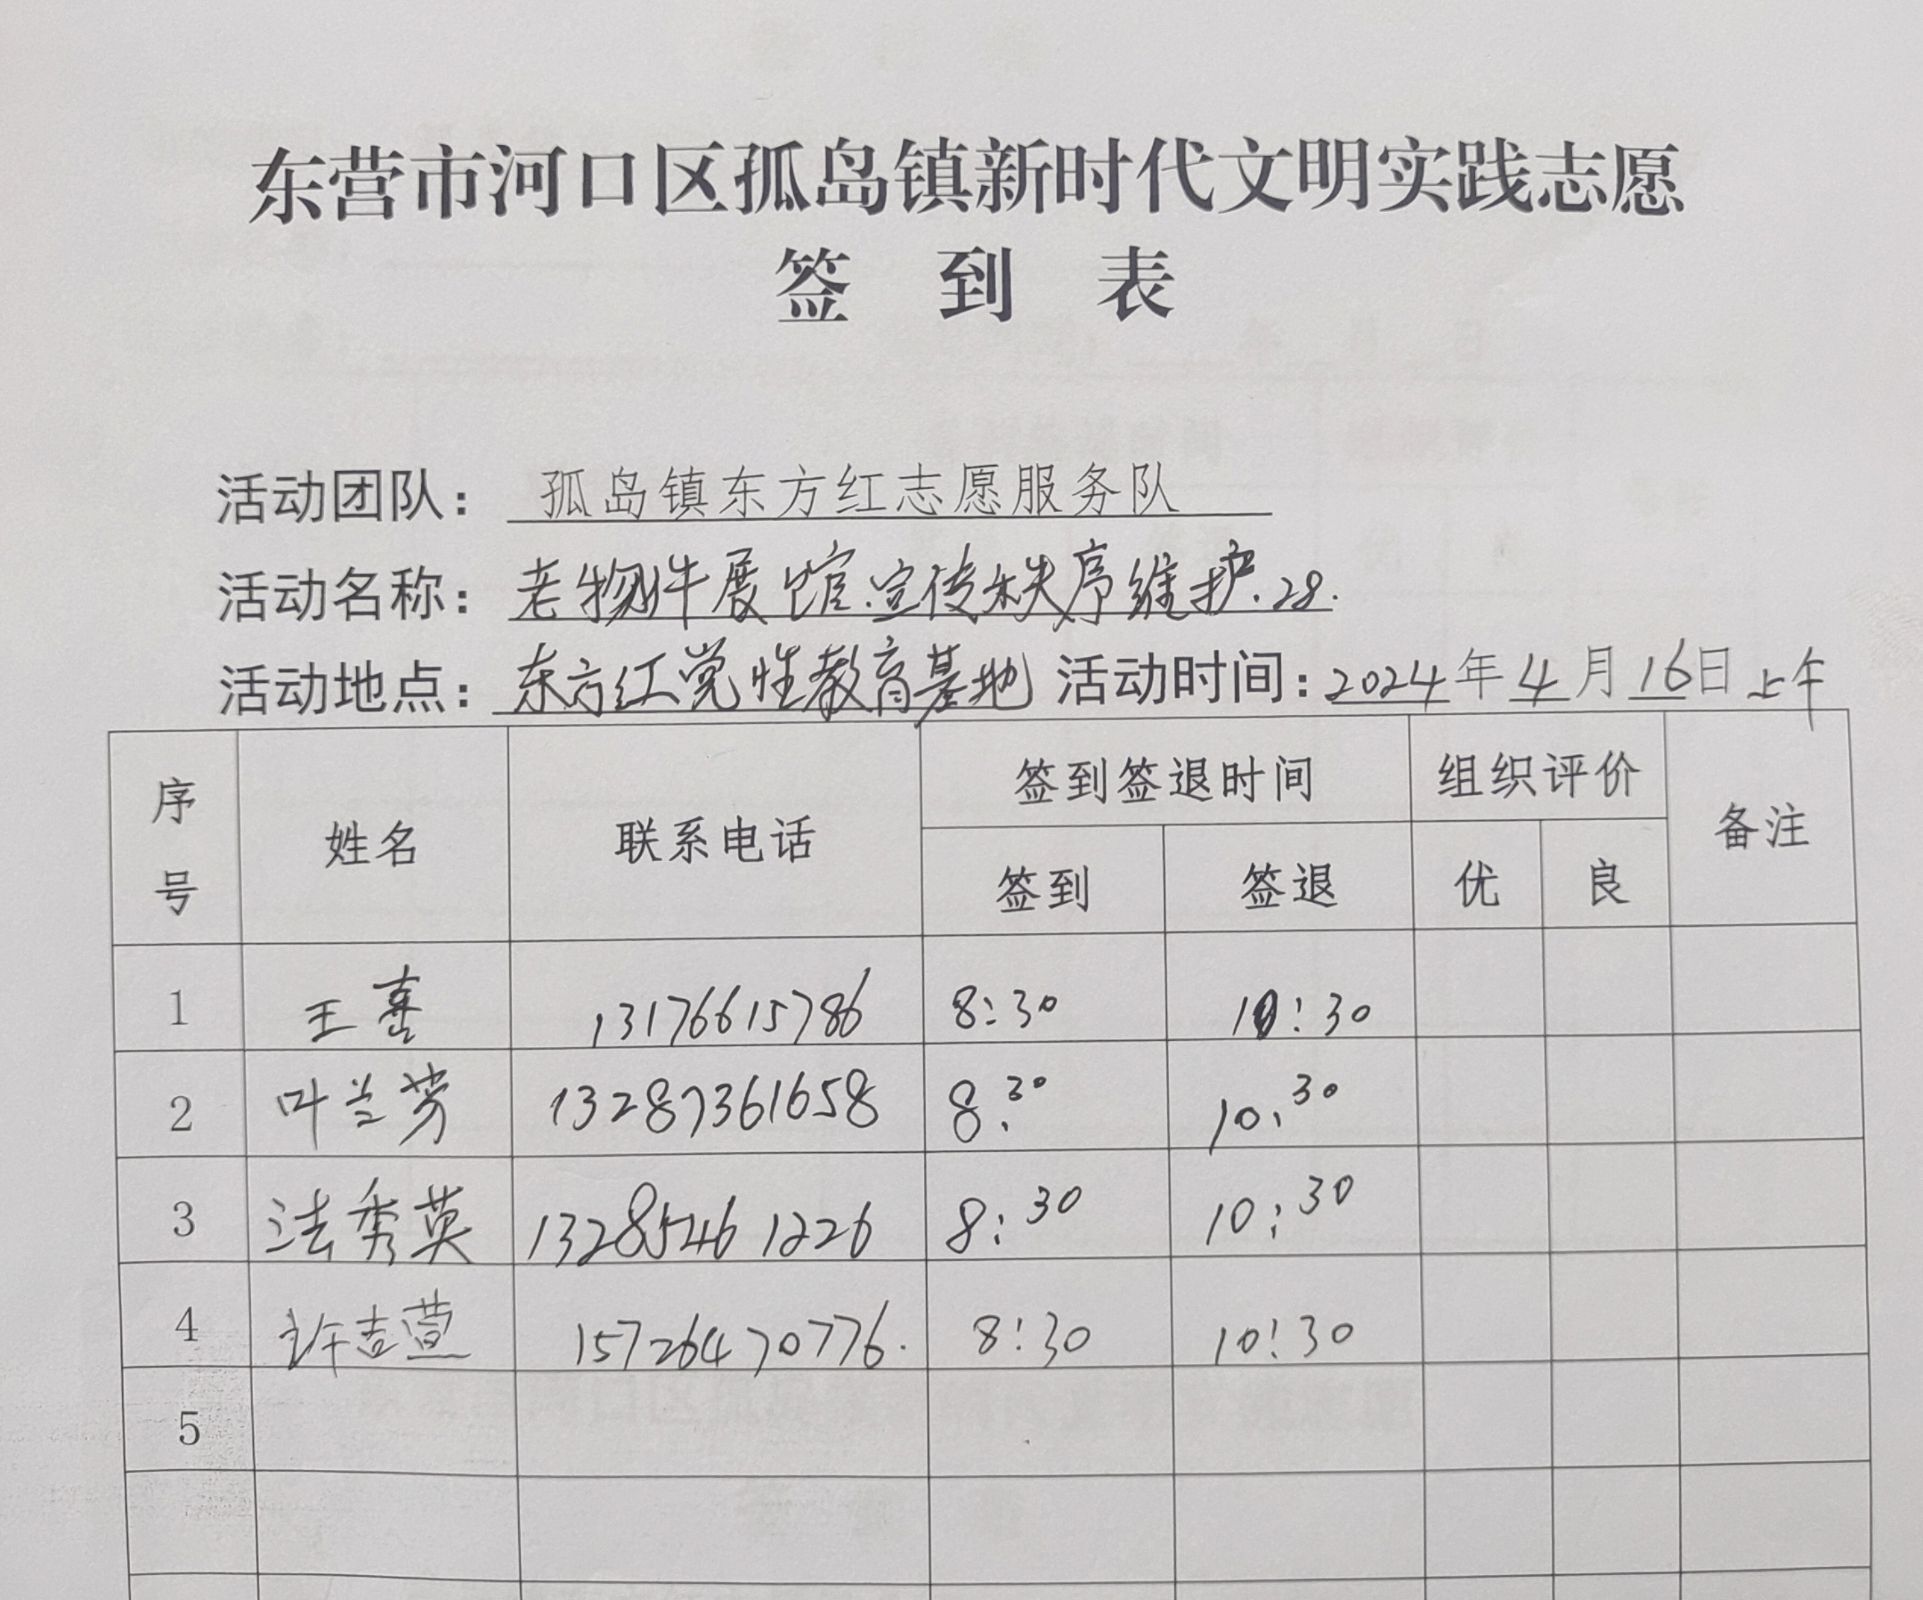 东营市河口区孤岛镇新时代文明实践志愿
签 到 表
活动团队：孤岛镇东方红志愿服务队
活动名称：老物件展馆.宣传秩序维护.28.
活动地点：东方红党性教育基地 活动时间：2024年4月16日上午
序号 姓名 联系电话 签到签退时间 组织评价 备注
签到 签退 优 良
1 王喜 13176615786 8:30 10:30
2 叶兰芳 13287361658 8:30 10:30
3 法秀英 13285461226 8:30 10:30
4 许吉萱 15726470776. 8:30 10:30
5